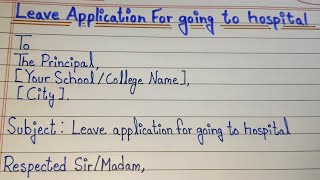 Leave Application For going to hospital
To
The Principal,
[Your School/College Name],
[City].
Subject: Leave application for going to hospital
Respected Sir/Madam,